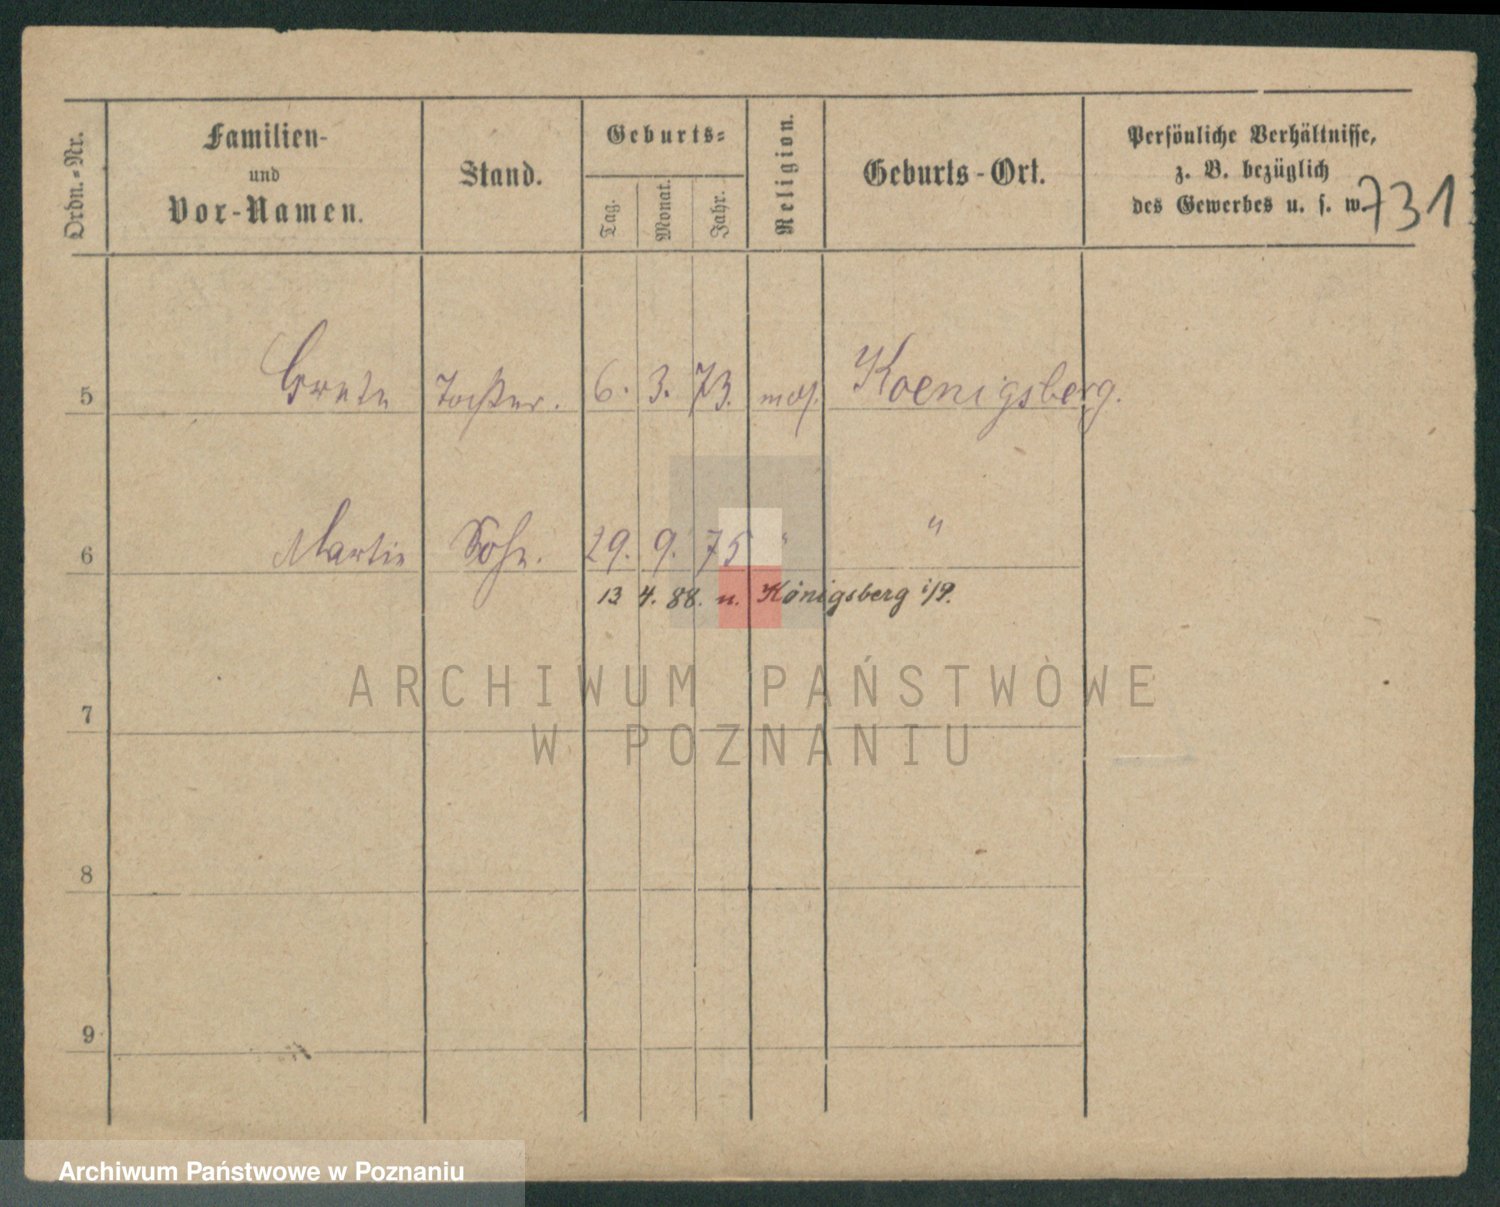 Ordn.-Nr.
Familien-
und
Vor-Namen.
Stand.
Geburts-
Tag.
Monat.
Jahr.
Religion.
Geburts-Ort.
Persönliche Verhältnisse,
z. B. bezüglich
des Gewerbes u. s. w.
731
5 Grete Tochter. 6. 3. 73. mos. Koenigsberg.
6 Martin Sohn. 29. 9. 75 " "
13 4. 88. n. Königsberg i/P.
7
8
9
ARCHIWUM PAŃSTWOWE
W POZNANIU
Archiwum Państwowe w Poznaniu